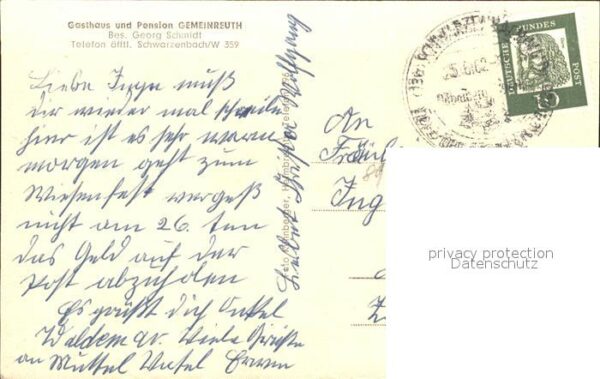 Gasthaus und Pension GEMEINREUTH
Bes. Georg Schmidt
Telefon öfftl. Schwarzenbach/W 359
Liebe Inge muß
dir wieder mal schreiben
hier ist es sehr warm
morgen geht zum
Wiesenfest vergeß
nicht am 26. ten
das Geld auf der
Post abzuholen
Es grüßt dich Onkel
Waldemar. Viele Grüße
an Muttel Vatel Erwin
Wolfgang
An
Fräul
Ing
DEUTSCHE BUNDESPOST
10
privacy protection
Datenschutz